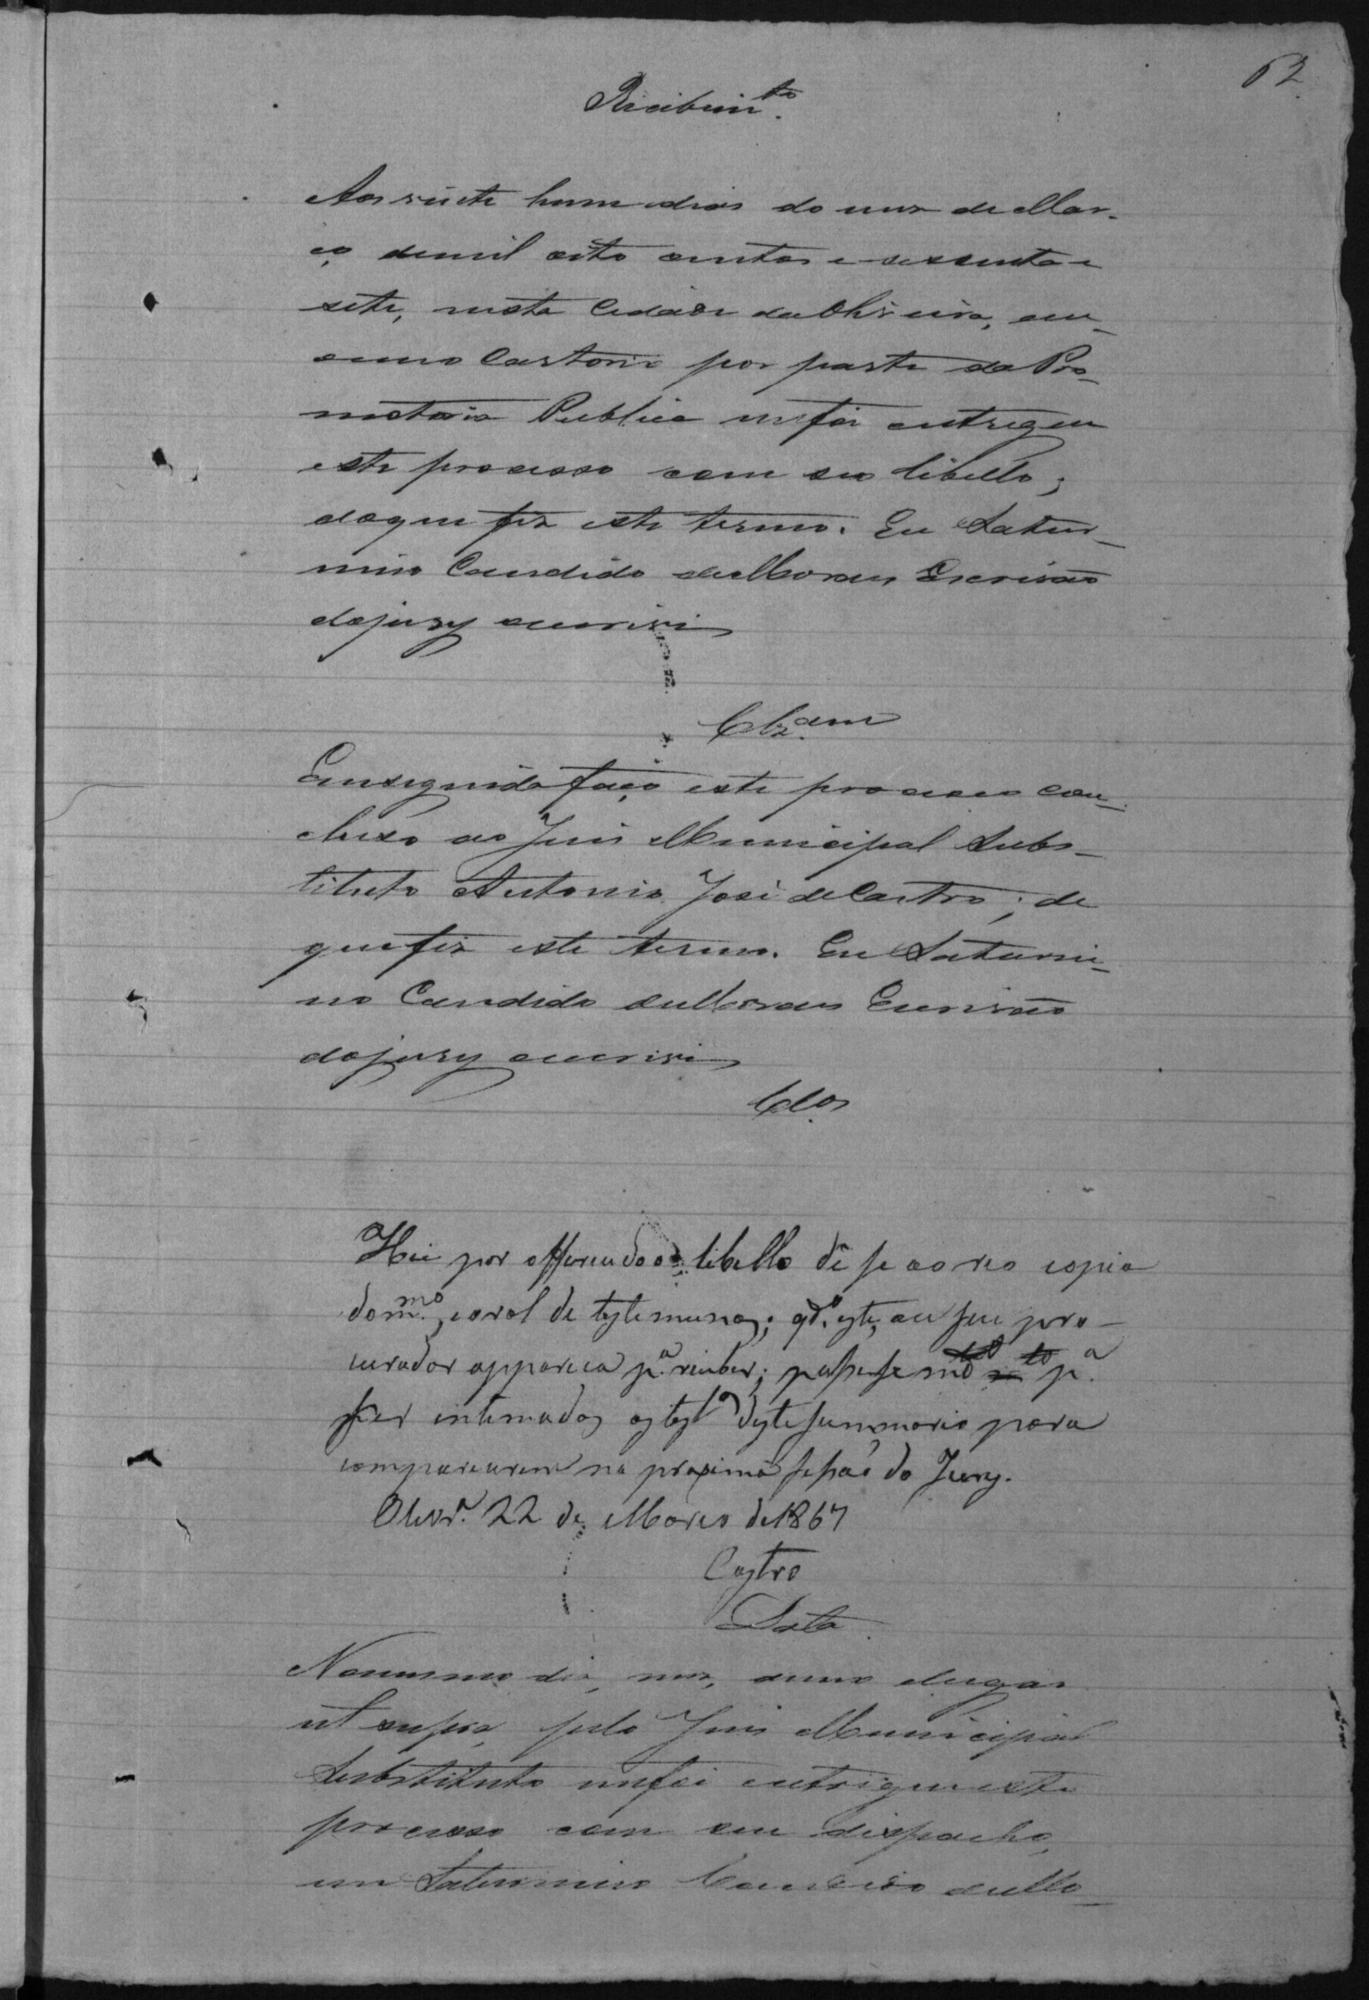 62
Recebim.to
Aos vinte hum dias do mez de Mar-
ço de mil oito centos e sessenta e
sete, nesta Cidade da Oliveira, em
meu Cartorio por parte da Pro-
motoria Publica me foi entregue
este processo com seu libello;
do que fiz este termo. Eu Satur-
nino Candido de Moraes Escrivão
do jury escrevi
Clz.am
Em seguida faço este processo con-
cluso ao Juis Municipal Subs-
tituto Antonio José de Castro; de
que fiz este termo. Eu Saturni-
no Candido de Moraes Escrivão
do jury escrevi
Clos
Hei por offerecido o libello dê se ao reo copia
do m.mo, e o rol de testemunas; qd.o este, ou seu pro-
curador appareca p.a receber; passe se p.a
ser intimados as test.as deste summario para
comparecerem na proxima sessaõ do Jury.
Olivr.a 22 de Março de 1867
Castro
Data
No mesmo dia, mez, anno e lugar
ut supra, pelo Juis Municipal
Substituto me foi entregue este
processo com seu dispacho,
eu Saturnino Candido de Mo-